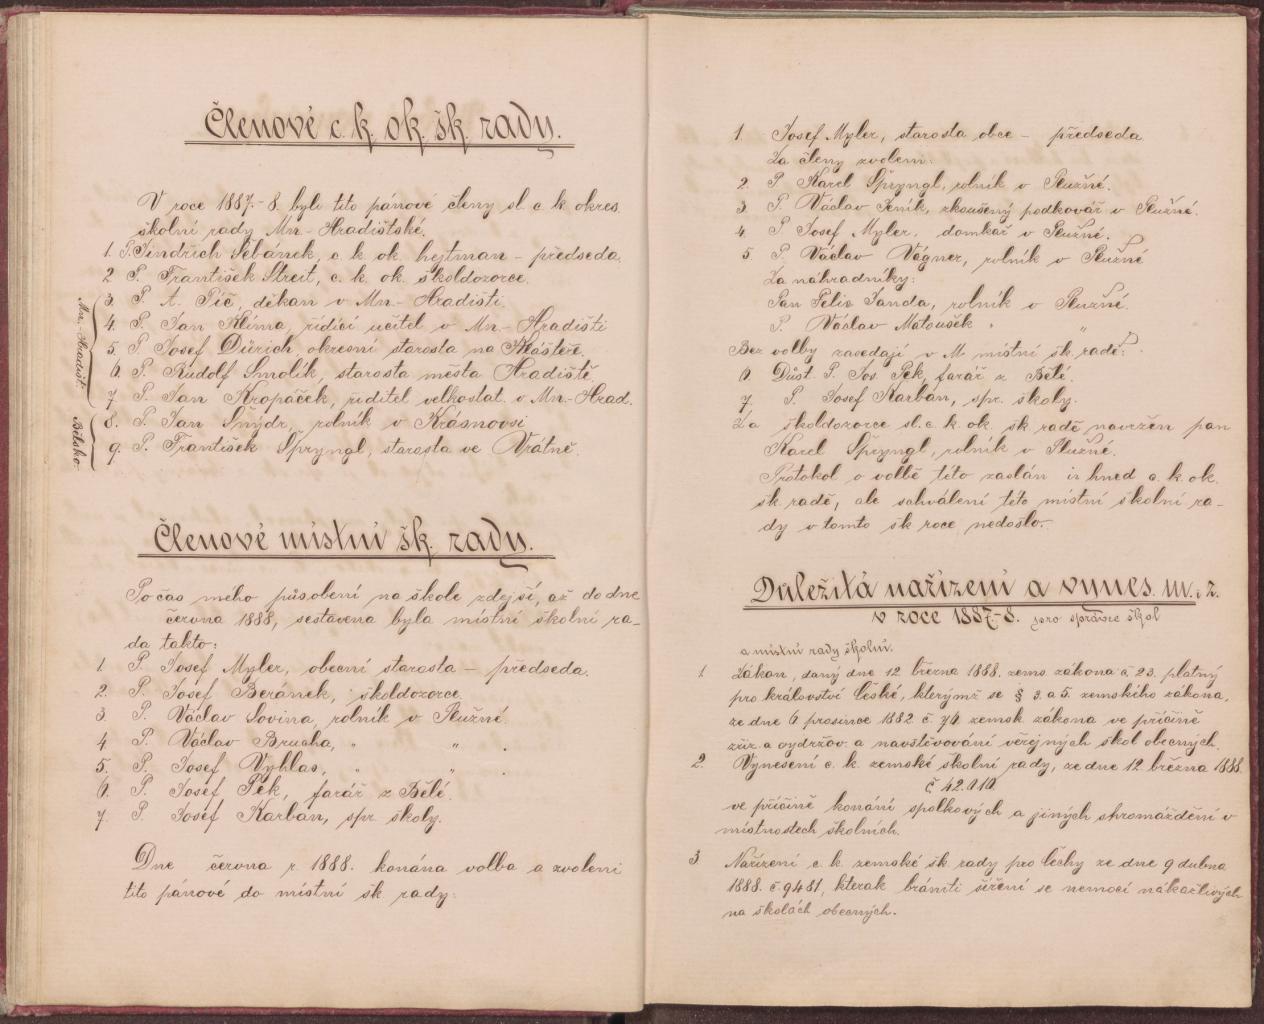 Členové c. k. ok. šk. rady.
V roce 1887.-8. byli tito pánové členy sl. c. k. okres.
školní rady Mn.-Hradištské.
1. P. Jindřich Šebánek, c. k. ok. hejtman – předseda.
2. P. František Streit, c. k. ok. školdozorce.
3. P. A. Píč, děkan v Mn.-Hradišti.
4. P. Jan Klíma, řídící učitel v Mn.-Hradišti
5. P. Josef Dürich, okresní starosta na Klášteře.
6. P. Rudolf Smolík, starosta města Hradiště.
7. P. Jan Kropáček, ředitel velkostat. v Mn.-Hrad.
8. P. Jan Šnýdr, rolník v Krásnovsi
9. P. František Špryngl, starosta ve Vrátně.
Mn. Hradišt.
Bělsko.
Členové místní šk. rady.
Počas mého působení na škole zdejší, až do dne
června 1888, sestavena byla místní školní ra-
da takto:
1 P. Josef Myler, obecní starosta – předseda.
2. P. Josef Beránek, školdozorce.
3. P. Václav Lovina, rolník v Plužné.
4 P. Václav Brucha, " " .
5. P. Josef Vyhlas, " " .
6. P. Josef Pek, farář z Bělé.
7. P. Josef Karban, spr. školy.
Dne června r. 1888. konána volba a zvoleni
tito pánové do místní šk. rady:
1. Josef Myler, starosta obce – předseda
Za členy zvoleni:
2. P. Karel Špryngl, rolník v Plužné.
3. P. Václav Jeník, zkoušený podkovář v Plužné.
4 P. Josef Myler, domkář v Plužné.
5. P. Václav Vágner, rolník v Plužné
Za náhradníky:
Pan Felix Janda, rolník v Plužné.
P. Václav Matoušek " "
Bez volby zasedají v M. místní šk. radě:
6. Důst. P. Jos. Pek, farář z Bělé.
7. P. Josef Karbán, spr. školy.
Za školdozorce sl. c. k. ok. šk. radě navržen pan
Karel Špryngl, rolník v Plužné.
Protokol o volbě této zaslán ihned c. k. ok.
šk. radě, ale schválení této místní školní ra-
dy v tomto šk. roce nedošlo.-
Důležitá nařízení a vynes.
v roce 1887.-8. pro správce škol
a místní rady školní.
1 Zákon, daný dne 12 března 1888. zems. zákona č. 23. platný
pro království České, kterýmž se § 3. a 5. zemského zákona,
ze dne 6 prosince 1882 č. 76 zemsk. zákona ve příčině
zříz. a vydržov. a navštěvování veřejných škol obecných.
2. Vynesení c. k. zemské školní rady, ze dne 12. března 1888.
č. 42.010
ve příčině konání spolkových a jiných shromáždění v
místnostech školních.
3 Nařízení c. k. zemské šk. rady pro Čechy ze dne 9 dubna
1888. č. 9481, kterak brániti šíření se nemocí nákažlivých
na školách obecných.